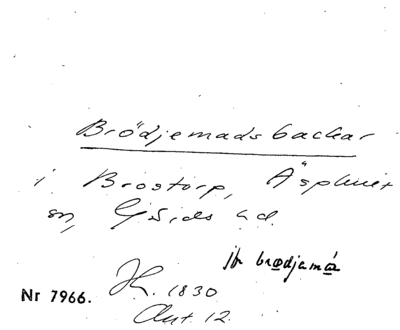 Brödjemadsbackar
i Brostorp, Äsphult
sn, Gärds hd.
jfr brødjamár
Nr 7966. 1830
Ant. 12.